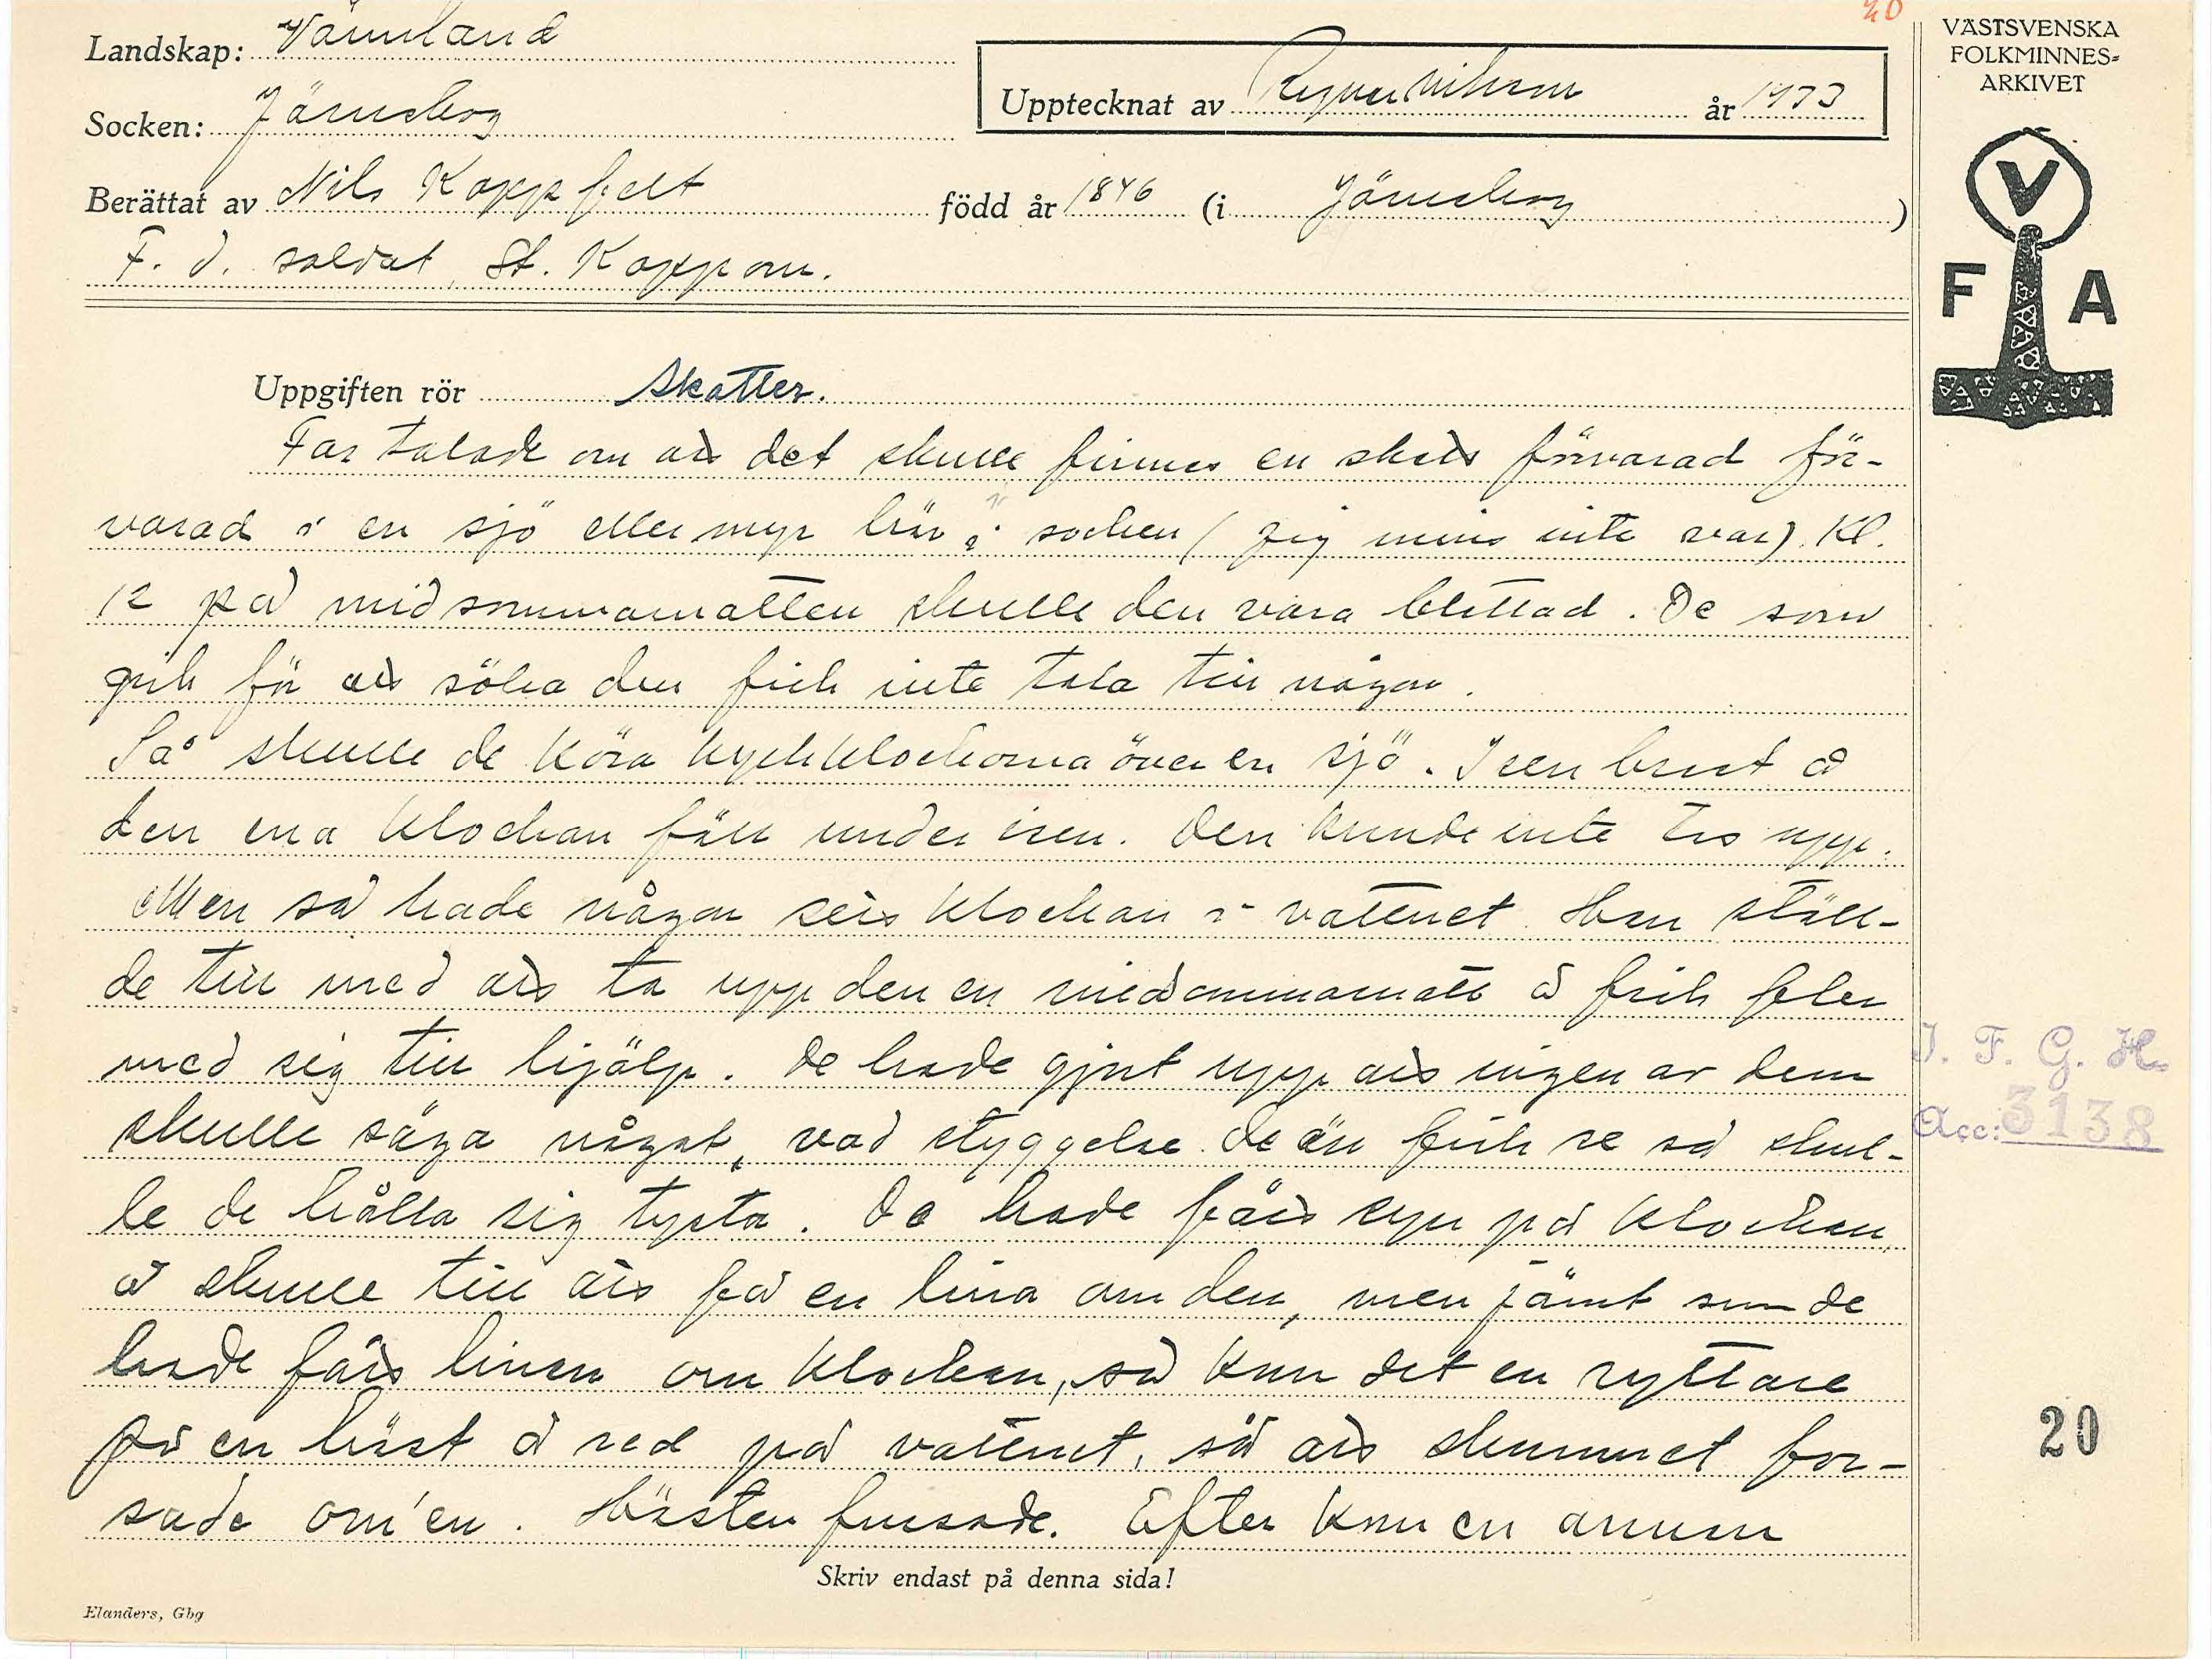 20
Landskap: Värmland
Upptecknat av Ragnar Nilsson år 1933
Socken: Järnskog
Berättat av Nils Koppfelt född år 1846 (i Järnskog)
F. d. soldat, St. Koppom.
VÄSTSVENSKA
FOLKMINNES-
ARKIVET
V
F A
Uppgiften rör Skatter.
Far talade om att det skulle finnas en skatt förvarad för-
varad i en sjö eller myr här i socken (jag minns inte var). Kl.
12 på midsommarnatten skulle den vara blottad. De som
gick för att söka den fick inte tala till någon.
Så skulle de köra kyrkklockorna över en sjö. Isen brast å
den ena klockan föll under isen. Den kunde inte tas upp.
Men så hade någon sett klockan i vattnet. Han ställ-
de till med att ta upp den en midsommarnatt å fick fler
med sig till hjälp. De hade gjort upp att ingen av dem
skulle säga något, vad styggelse de än fick se så skul-
le de hålla sig tysta. De hade fått syn på klockan
å skulle till att få en lina om den, men jämt som de
hade fått linan om klockan, så kom det en ryttare
på en häst å red på vattnet, så att skummet for-
sade om'en. Hästen frusade. Efter kom en annan
I. F. G. H.
Acc: 3138
20
Skriv endast på denna sida!
Elanders, Gbg